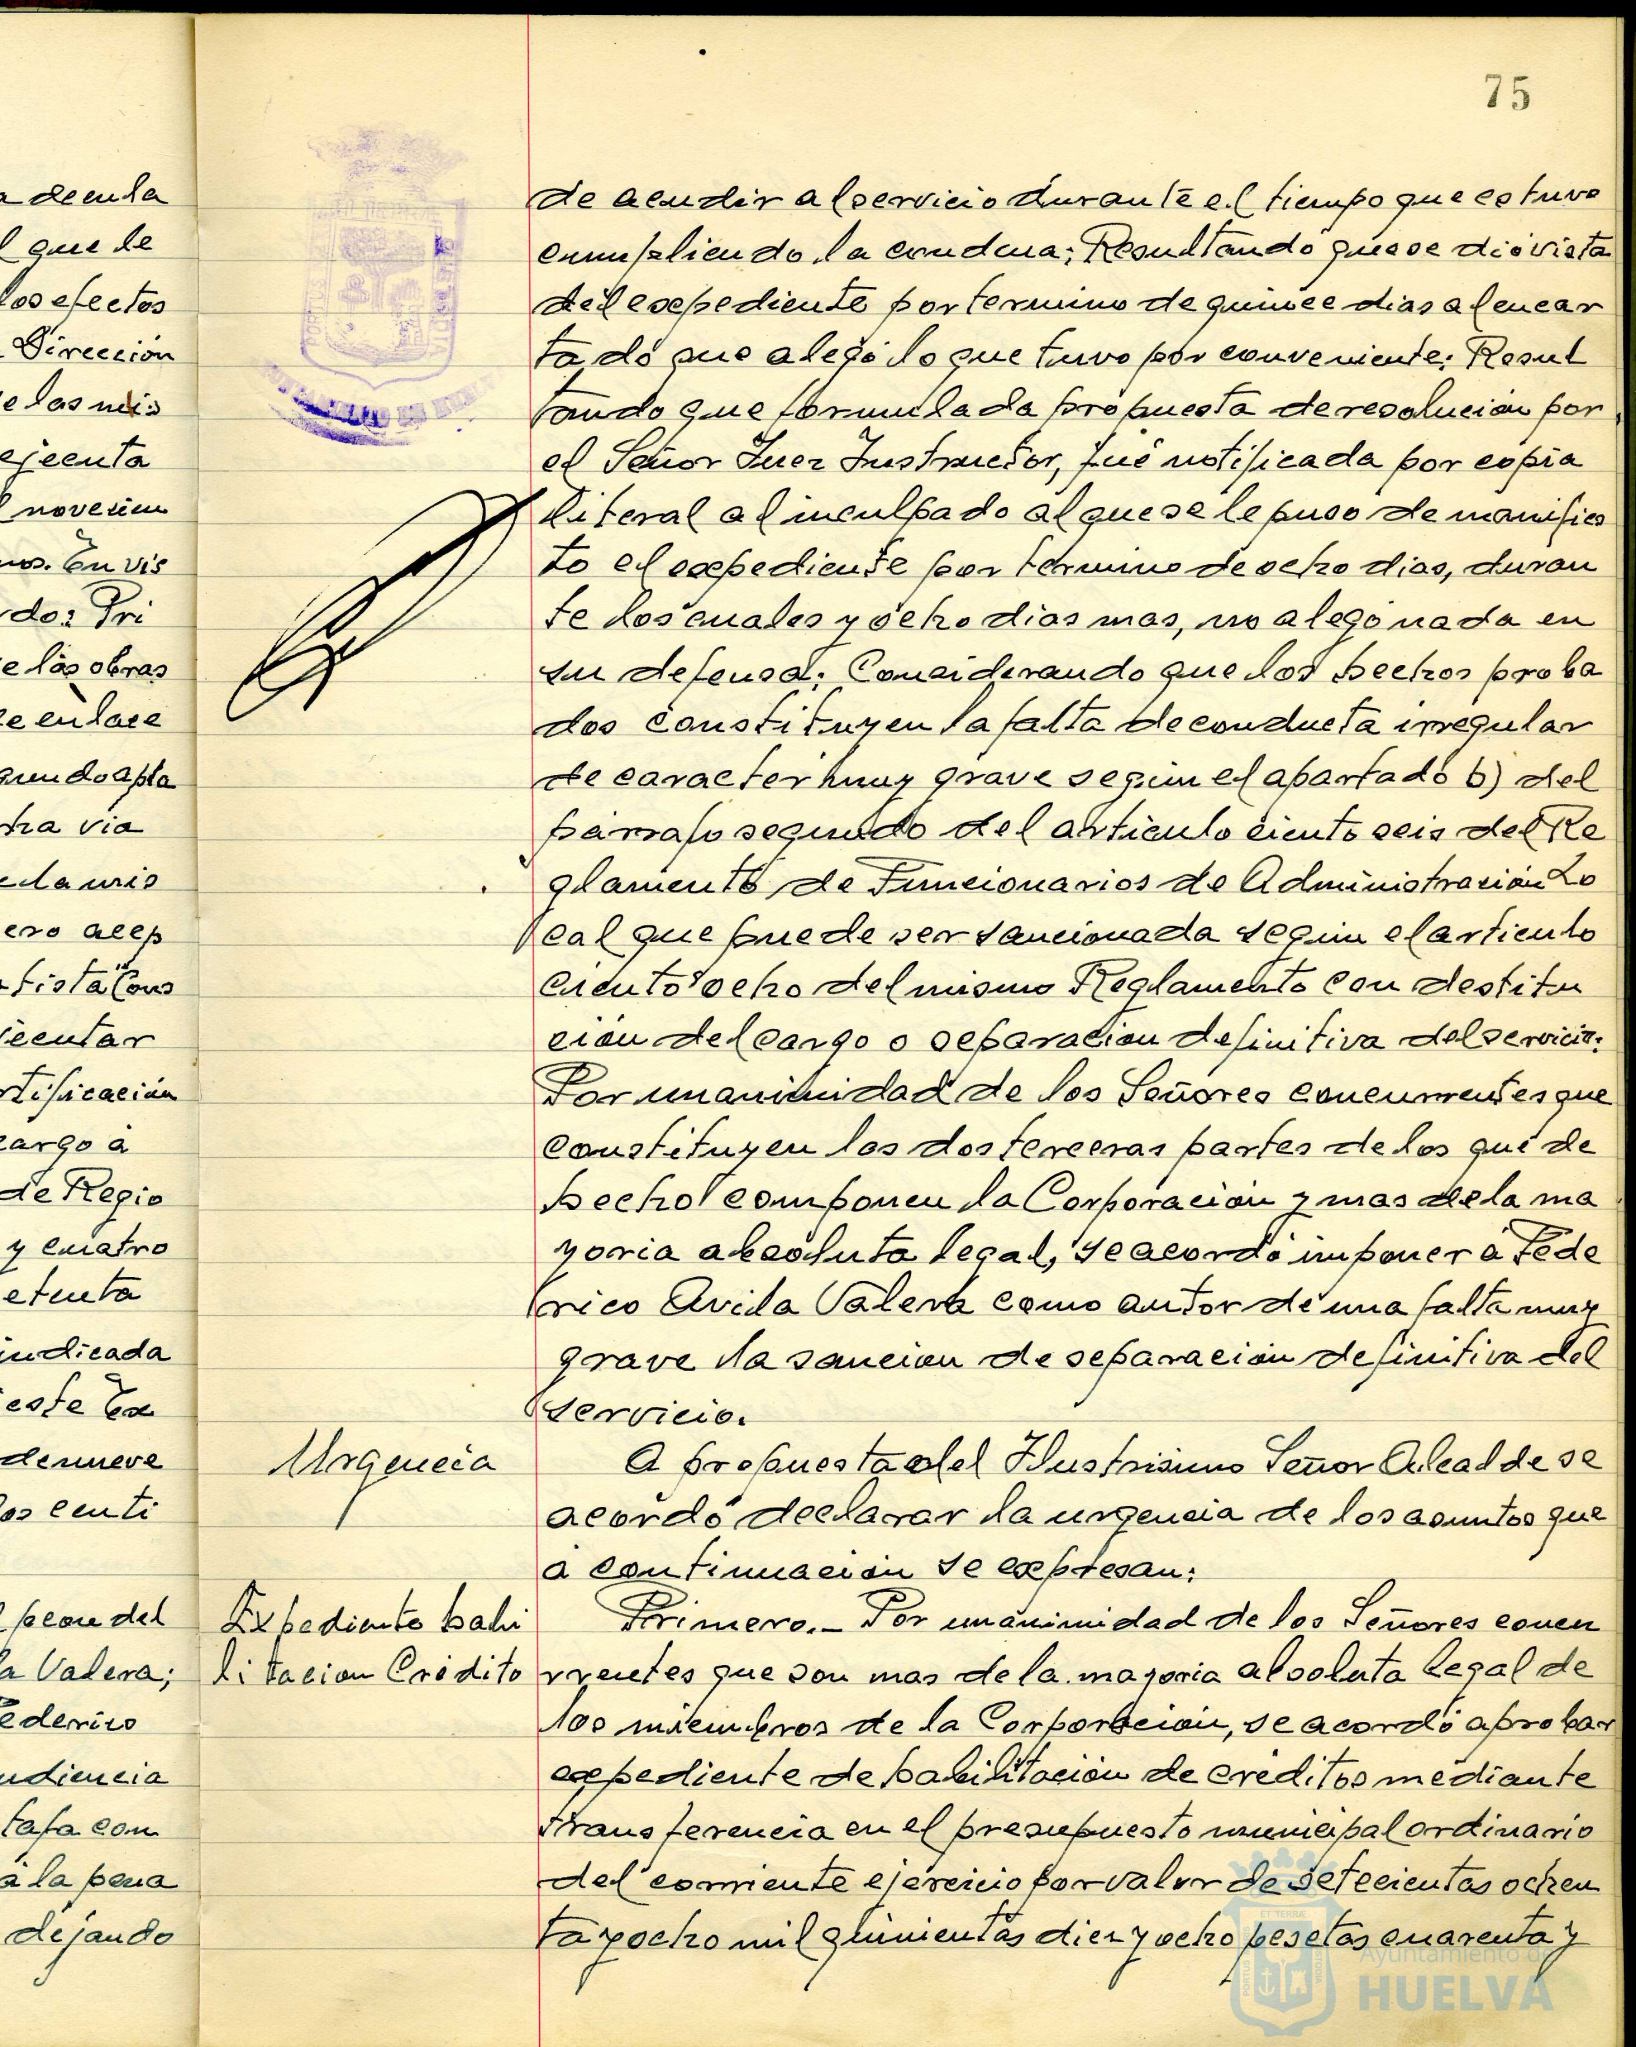 75
a de en la
l que le
los efectos
Dirección
e las mis
ejecuta
l novecien
nos. En vis
rdo: Pri
e las obras
de enlace
gundo apla
tra via
e la mis
ero acep
tista "Cons
jecutar
rtificación
cargo a
de Regio
y cuatro
etenta
indicada
este Ex
de nueve
os centi
l peon del
la Valera;
ederico
udiencia
tafa con
a la pena
dejando
de acudir al servicio durante el tiempo que estuvo
cumpliendo la condena; Resultando que se dió vista
del expediente por termino de quince dias al encar
tado que alegó lo que tuvo por conveniente; Resul
tando que formulada propuesta de resolución por
el Señor Juez Instructor, fué notificada por copia
literal al inculpado al que se le puso de manifies
to el expediente por termino de ocho dias, duran
te los cuales y ocho dias mas, no alegó nada en
su defensa; Considerando que los hechos proba
dos constituyen la falta de conducta irregular
de caracter muy grave según el apartado b) del
párrafo segundo del articulo ciento seis del Re
glamento de Funcionarios de Administración Lo
cal que puede ser sancionada según el articulo
ciento ocho del mismo Reglamento con destitu
ción del cargo o separación definitiva del servicio;
Por unanimidad de los Señores concurrentes que
constituyen las dos terceras partes de los que de
hecho componen la Corporación y mas de la ma
yoria absoluta legal, se acordó imponer a Fede
rico Avila Valera como autor de una falta muy
grave la sancion de separación definitiva del
servicio.
Urgencia
A propuesta del Ilustrisimo Señor Alcalde se
acordó declarar la urgencia de los asuntos que
a continuación se expresan:
Expediente habi
litacion Crédito
Primero.- Por unanimidad de los Señores concu
rrentes que son mas de la mayoria absoluta legal de
los miembros de la Corporación, se acordó aprobar
expediente de habilitación de creditos mediante
transferencia en el presupuesto municipal ordinario
del corriente ejercicio por valor de setecientas ochen
ta y ocho mil quinientas diez y ocho pesetas cuarenta y
Ayuntamiento de
HUELVA